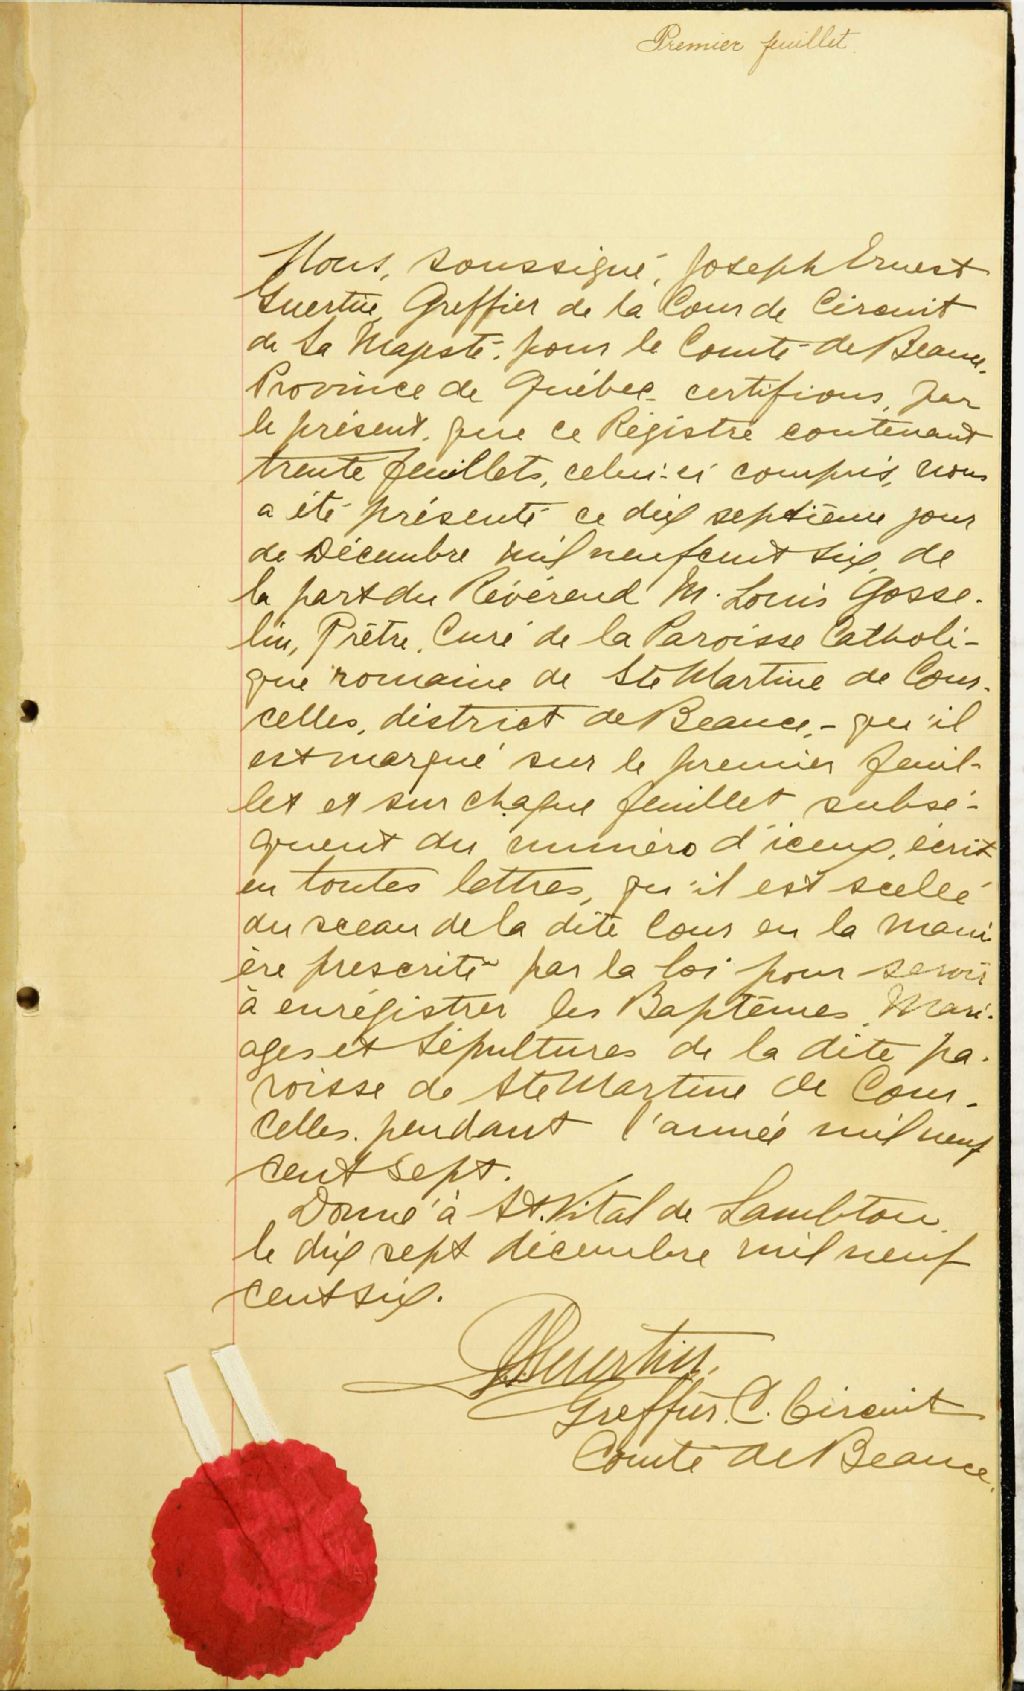 Premier feuillet.
Nous, soussigné, Joseph Ernest
Guertin, Greffier de la Cour de Circuit
de Sa Majesté, pour le Comté de Beauce,
Province de Québec certifions, par
le présent, que ce Régistre contenant
trente feuillets, celui-ci compris, nous
a été présenté ce dix septième jour
de Décembre mil neuf cent six, de
la part du Révérend M. Louis Gosse-
lin, Prêtre, Curé de la Paroisse Catholi-
que romaine de Ste Martine de Cour-
celles, district de Beauce, - qu'il
est marqué sur le premier feuil-
let et sur chaque feuillet subsé-
quent du numéro d'iceux, écrit
en toutes lettres, qu'il est scellé
du sceau de la dite Cour en la mani
ère prescrite par la loi pour servir
à enrégistrer les Baptêmes, Mari-
ages et Sépultures de la dite pa-
roisse de Ste Martine de Cour-
celles, pendant l'année mil neuf
cent sept.
Donné à St. Vital de Lambton,
le dix sept décembre mil neuf
cent six.
Guertin,
Greffier C. Circuit
Comté de Beauce.